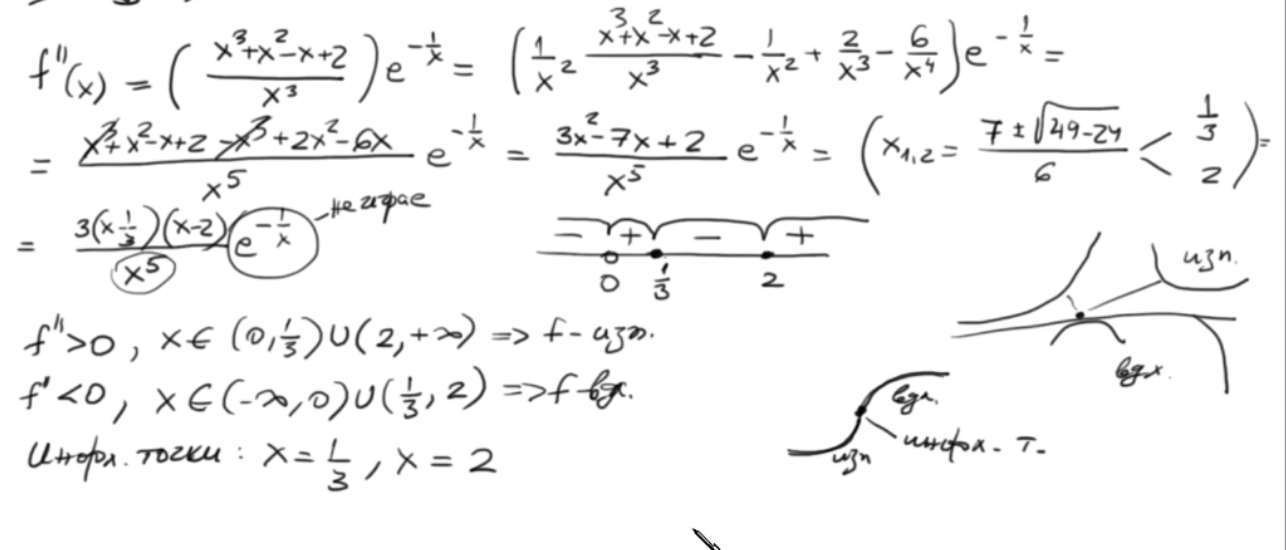 f''(x) = ((x³+x²-x+2)/x³) e^(-1/x) = (1/x² (x³+x²-x+2)/x³ - 1/x² + 2/x³ - 6/x⁴) e^(-1/x) =
= (x³+x²-x+2-x³+2x²-6x)/x⁵ e^(-1/x) = (3x²-7x+2)/x⁵ e^(-1/x) = (x₁,₂ = (7±√(49-24))/6 < 1/3 2) =
= 3(x-1/3)(x-2)/x⁵ e^(-1/x) не играе
- + - +
0 1/3 2
изп.
вдл.
f''>0, x∈(0,1/3)∪(2,+∞) => f - изп.
f'<0, x∈(-∞,0)∪(1/3,2) => f вдл.
Инфл. точки: x = 1/3, x = 2
вдл.
инфл. т.
изп